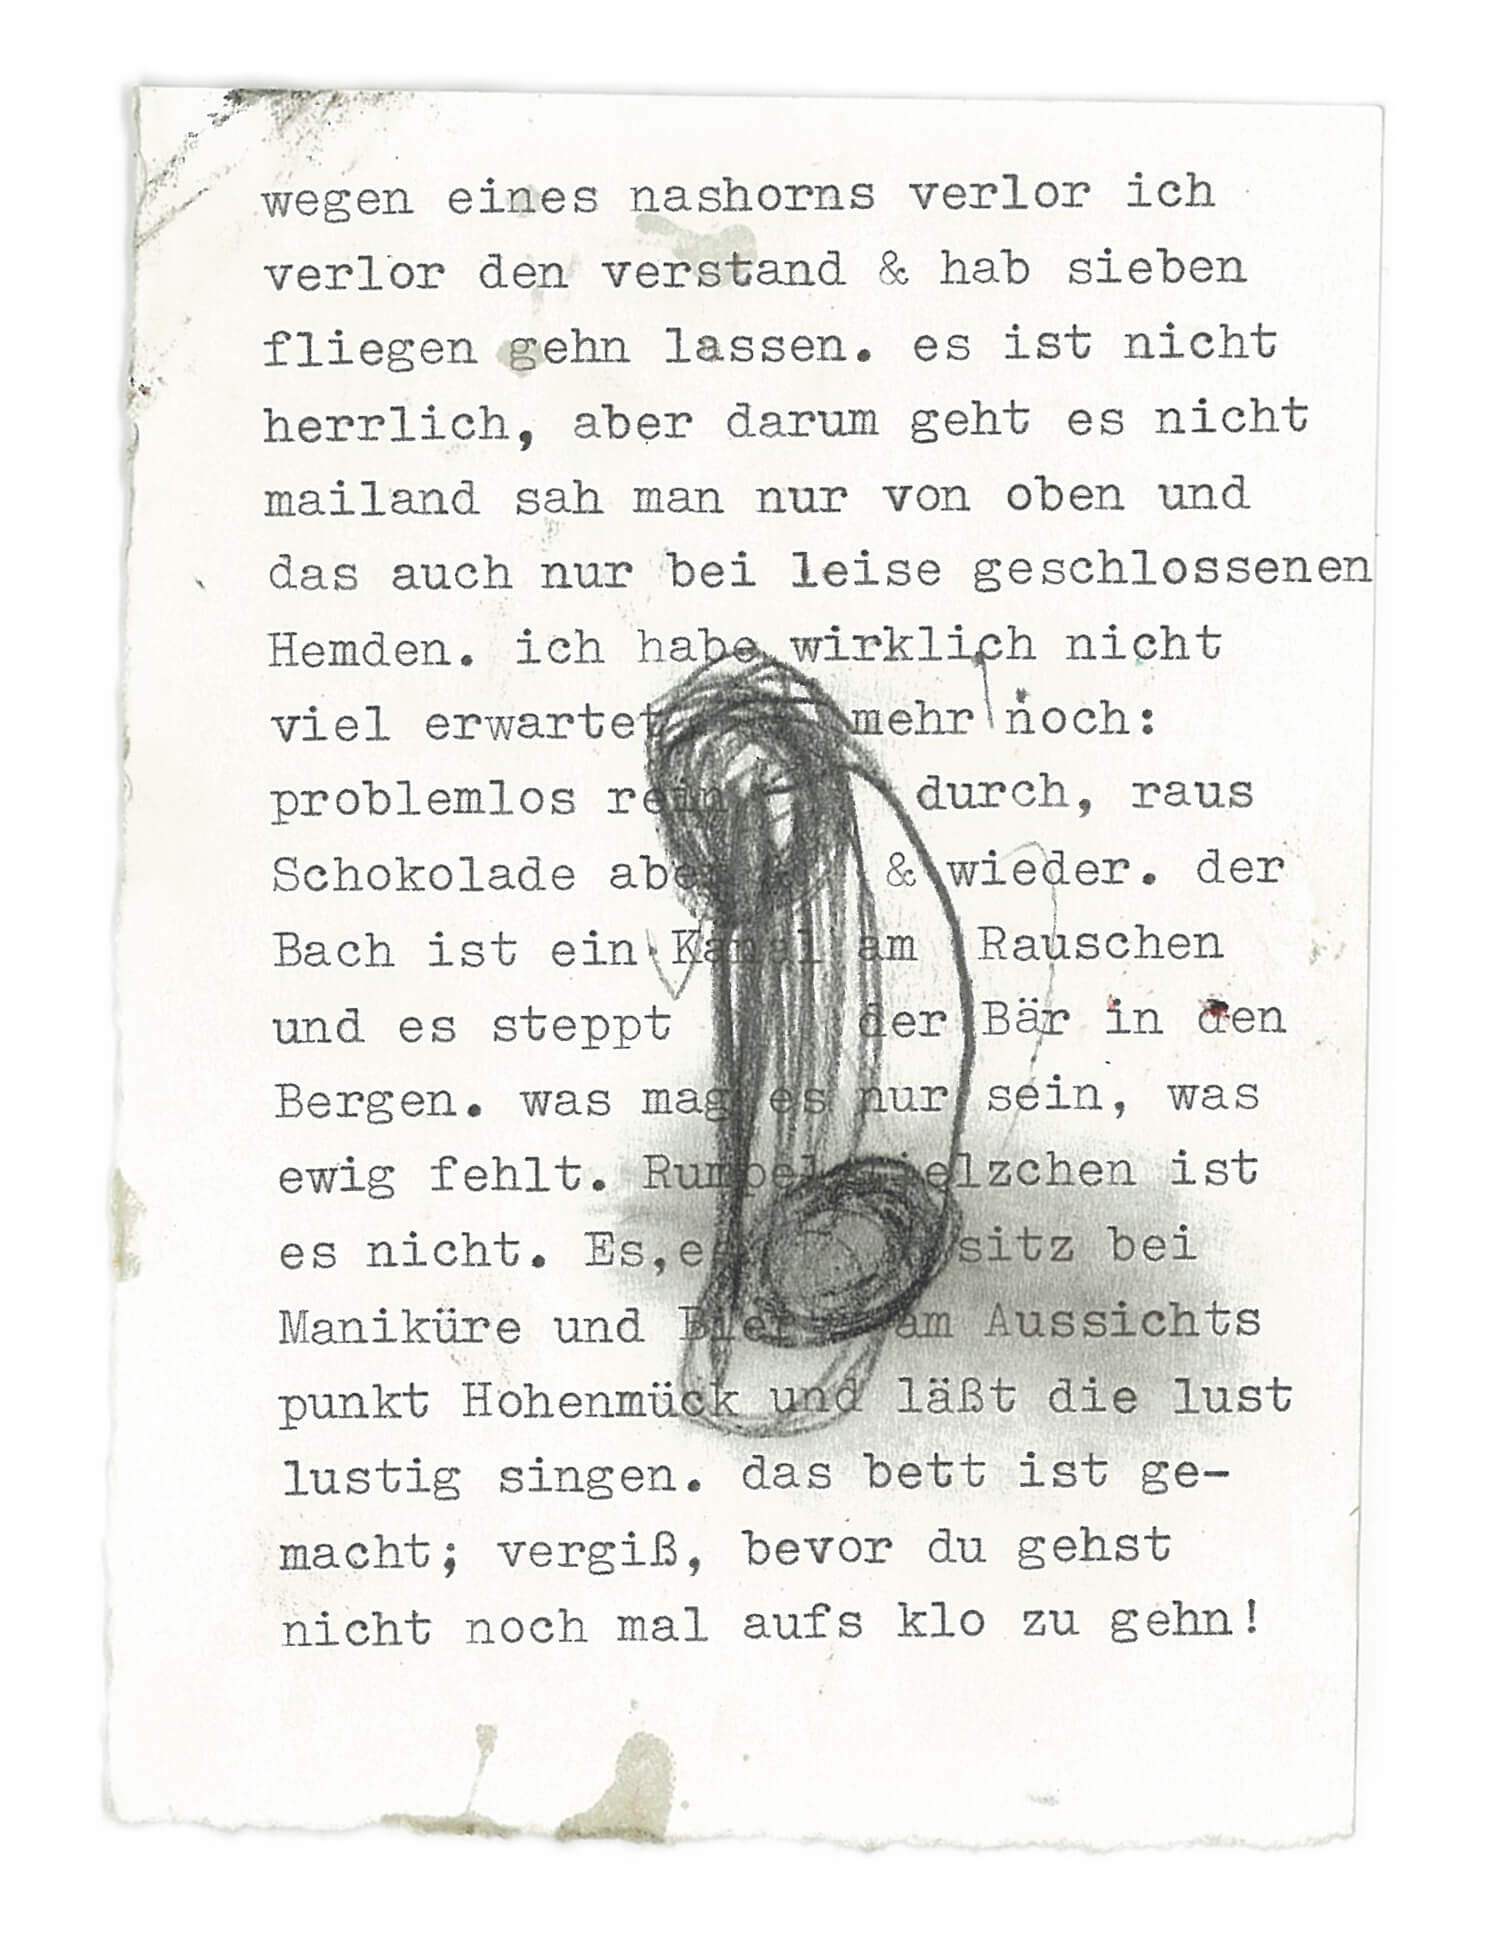 wegen eines nashorns verlor ich
verlor den verstand & hab sieben
fliegen gehn lassen. es ist nicht
herrlich, aber darum geht es nicht
mailand sah man nur von oben und
das auch nur bei leise geschlossenen
Hemden. ich habe wirklich nicht
viel erwartet mehr noch:
problemlos rein durch, raus
Schokolade aber & wieder. der
Bach ist ein Kanal am Rauschen
und es steppt der Bär in den
Bergen. was mag es nur sein, was
ewig fehlt. Rumpelstielzchen ist
es nicht. Es, sitz bei
Maniküre und Bier am Aussichts
punkt Hohenmück und läßt die lust
lustig singen. das bett ist ge-
macht; vergiß, bevor du gehst
nicht noch mal aufs klo zu gehn!